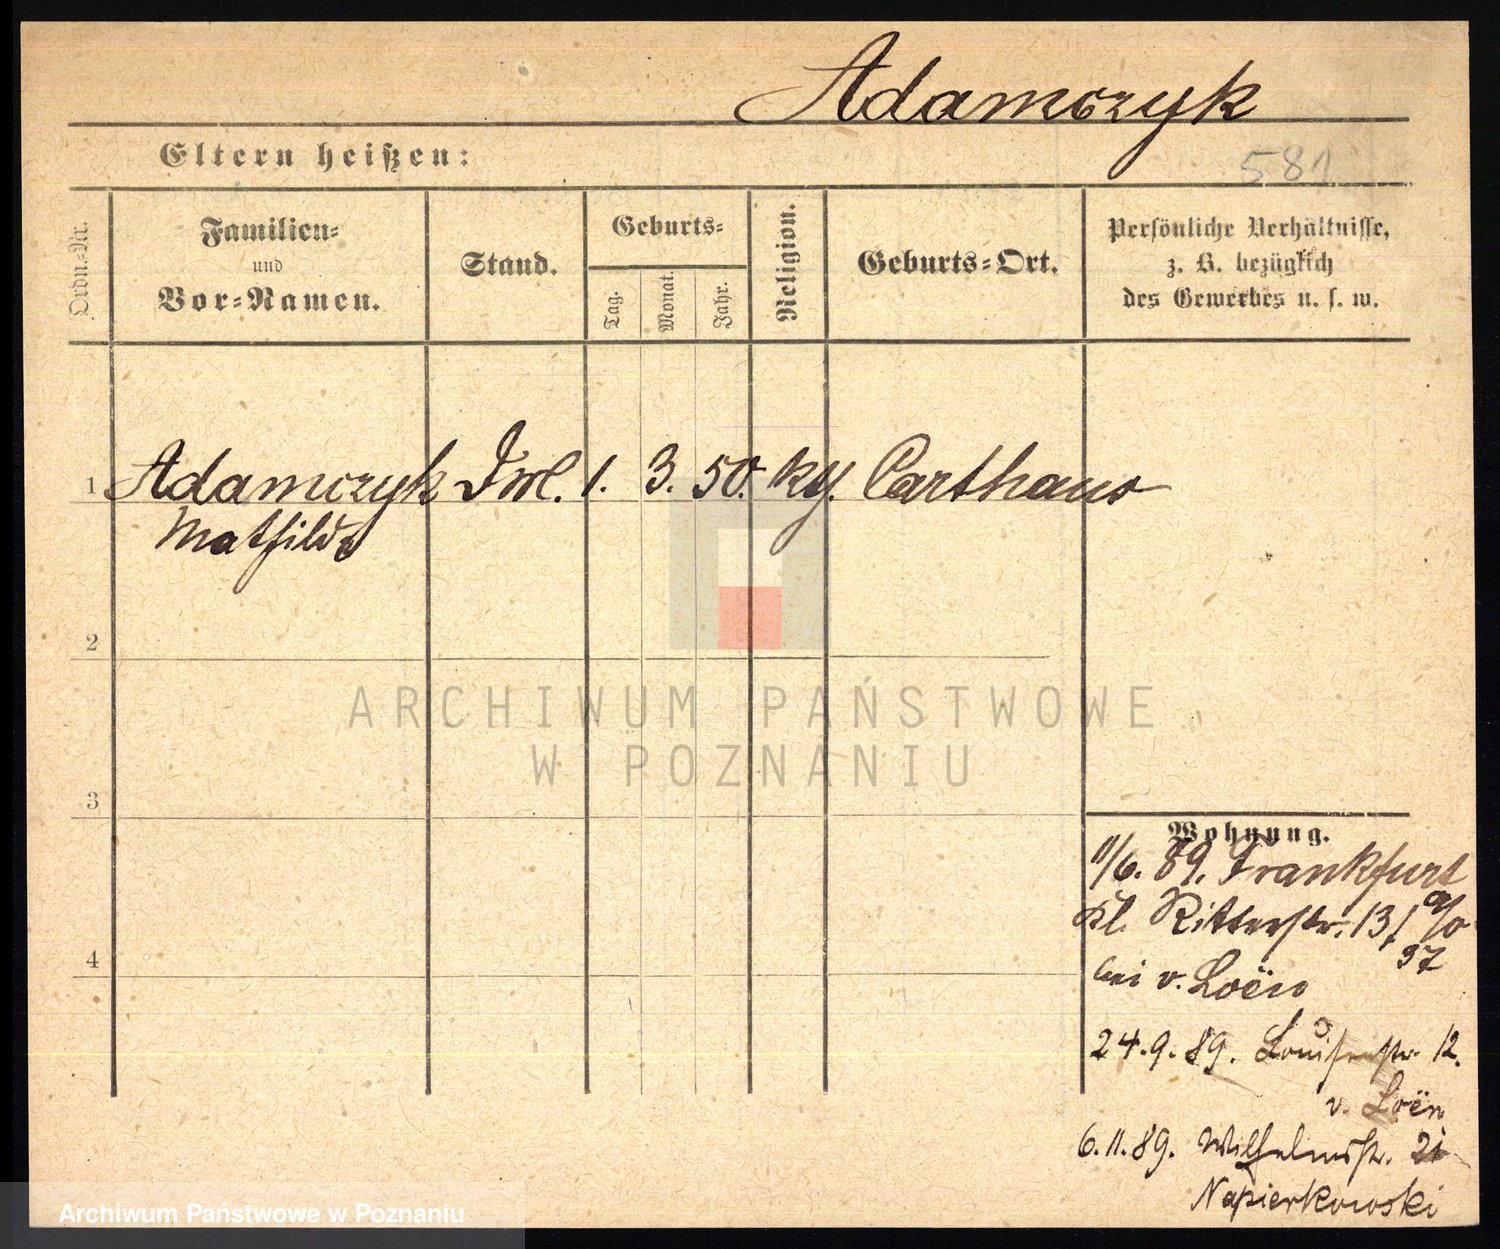 Adamczyk
581
Eltern heißen:
Ordn.-Nr.
Familien-
und
Vor-Namen.
Stand.
Geburts-
Tag.
Monat.
Jahr.
Religion.
Geburts-Ort.
Persönliche Verhältnisse,
z. B. bezüglich
des Gewerbes u. s. w.
1 Adamczyk Frl. 1. 3. 50. ky. Carthaus
Mathilde
2
3
4
Wohnung.
11/6. 89. Frankfurt
a/O
Kl. Ritterstr. 13/
97
bei v. Loën
24.9.89. Louisenstr. 12.
v. Loën
6.11.89. Wilhelmstr.
Napierkowski
ARCHIWUM PAŃSTWOWE
W POZNANIU
Archiwum Państwowe w Poznaniu